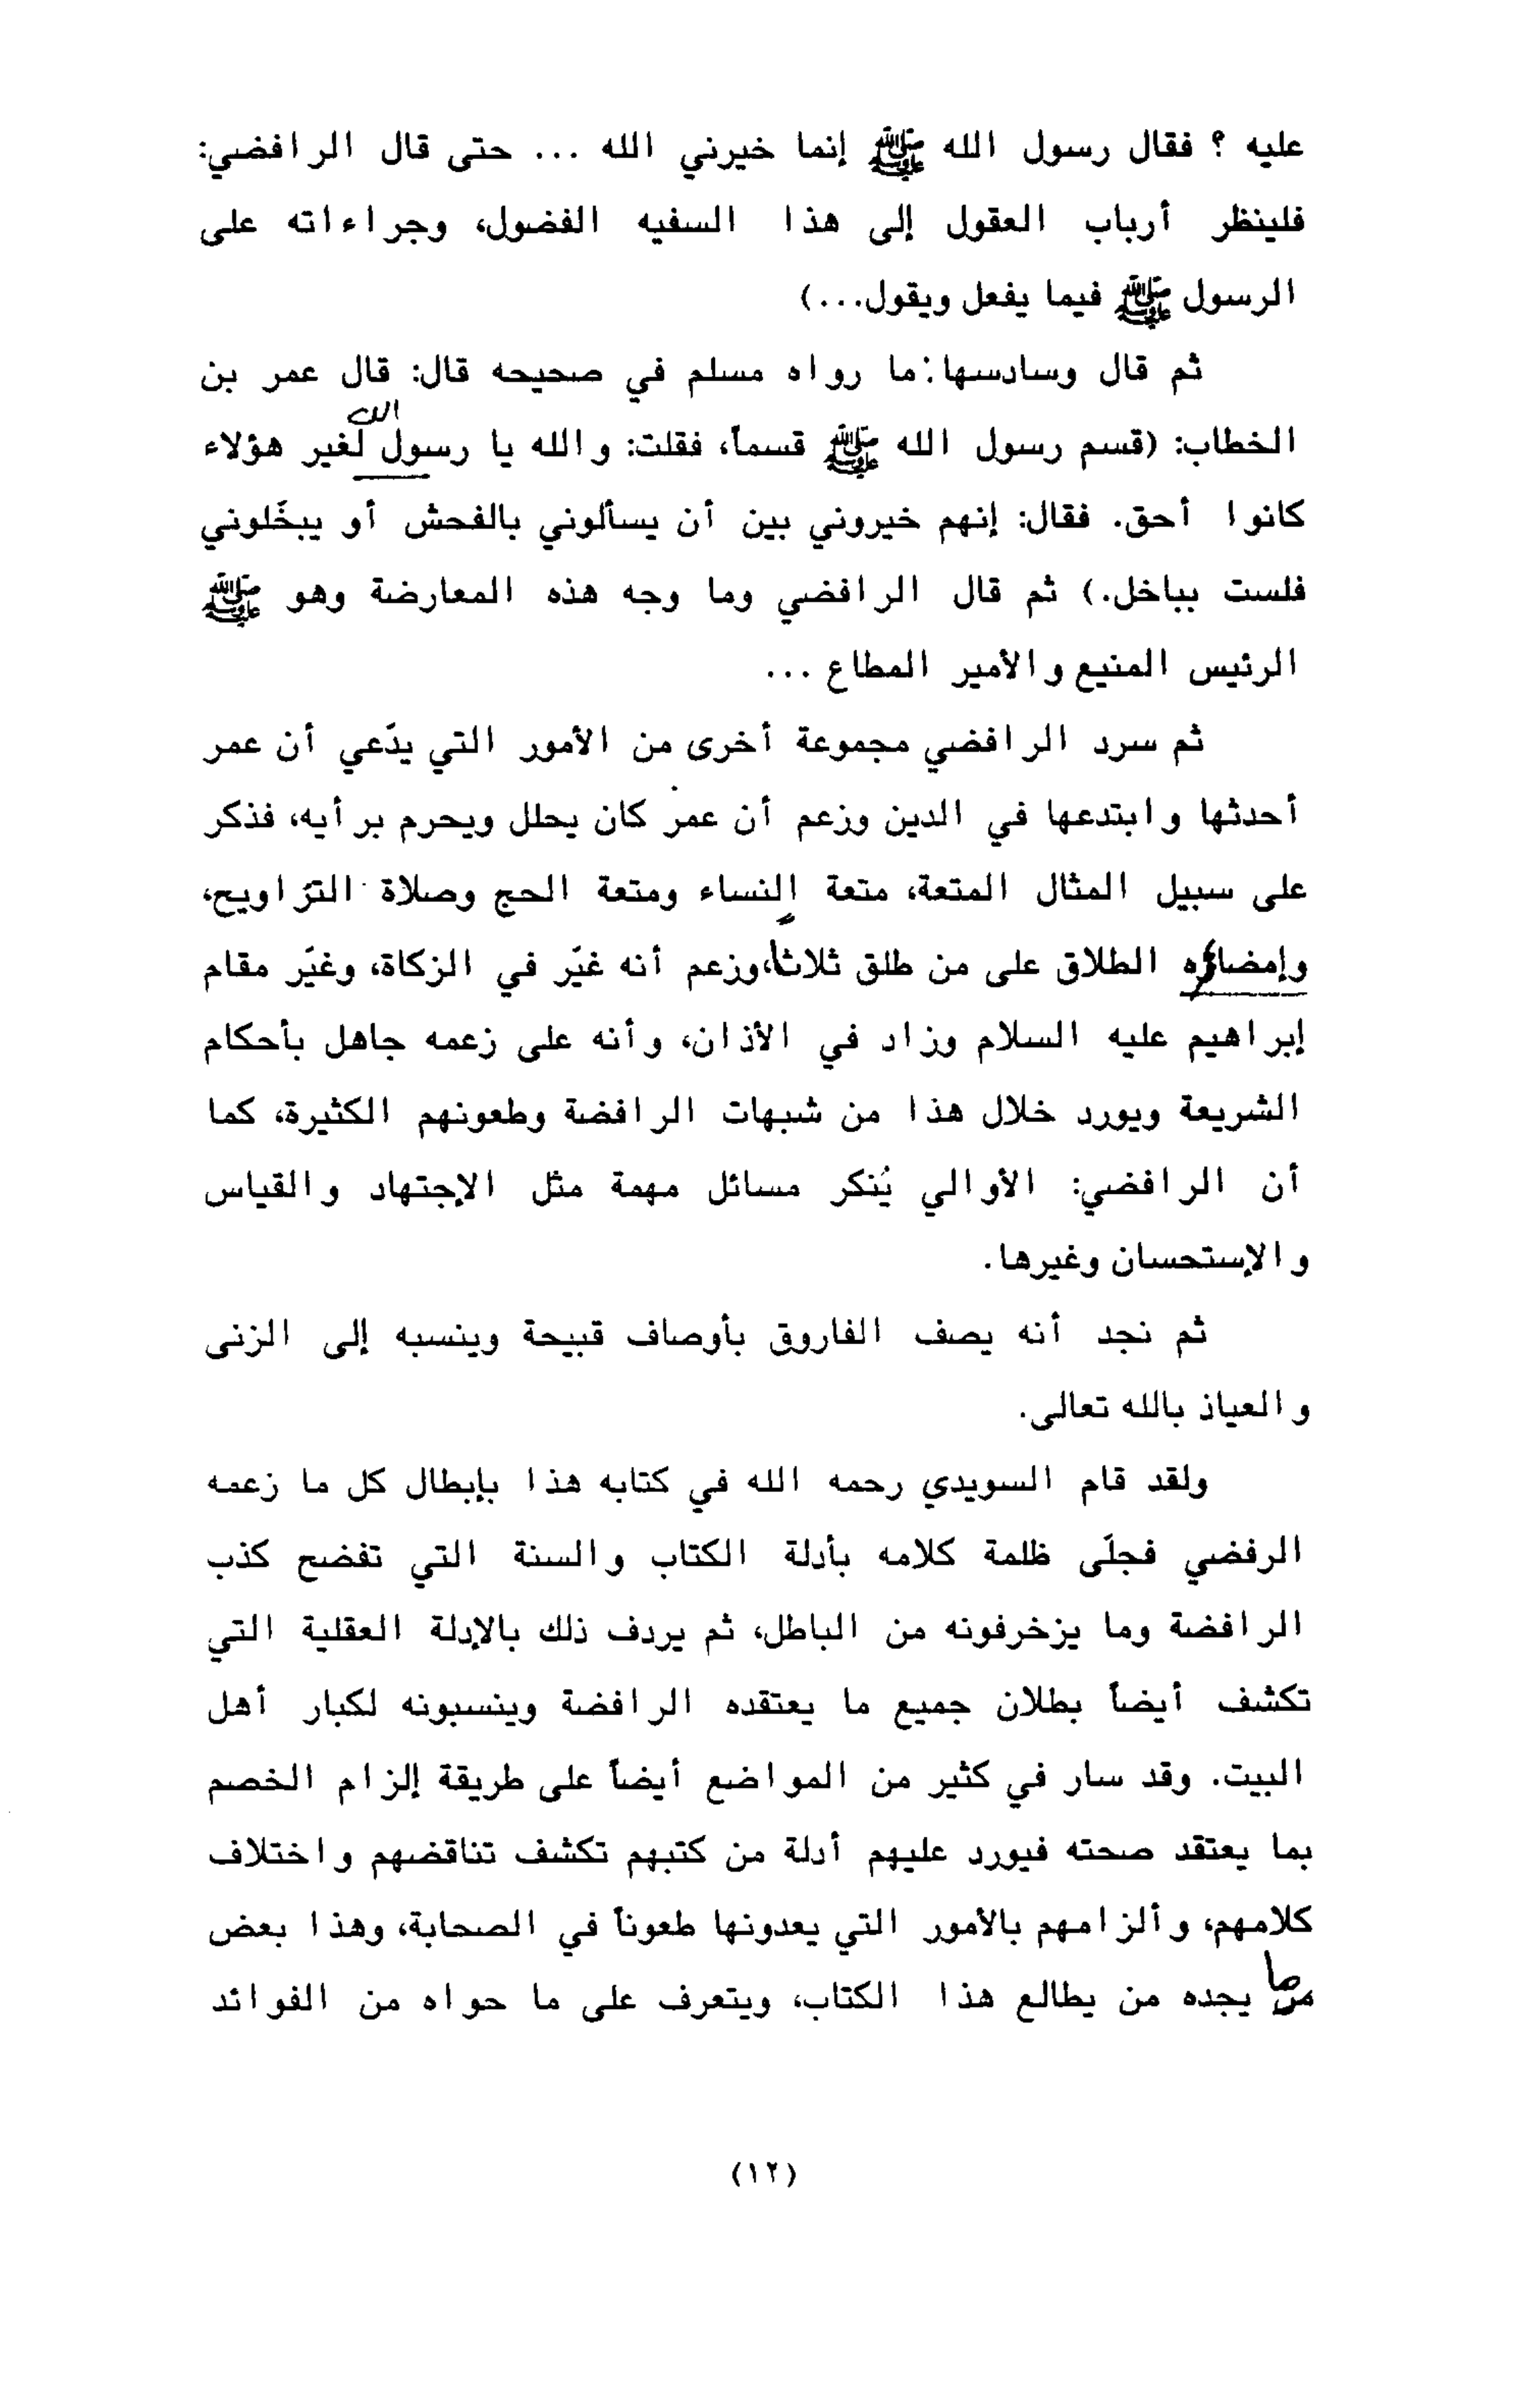 عليه ؟ فقال رسول الله ﷺ إنما خيرني الله ... حتى قال الرافضي:
فلينظر أرباب العقول إلى هذا السفيه الفضول، وجراءاته على
الرسول ﷺ فيما يفعل ويقول...)
ثم قال وسادسها: ما رواه مسلم في صحيحه قال: قال عمر بن
الخطاب: (قسم رسول الله ﷺ قسماً، فقلت: والله يا رسول الله لغير هؤلاء
كانوا أحق. فقال: إنهم خيروني بين أن يسألوني بالفحش أو يبخّلوني
فلست بباخل.) ثم قال الرافضي وما وجه هذه المعارضة وهو ﷺ
الرئيس المنيع والأمير المطاع ...
ثم سرد الرافضي مجموعة أخرى من الأمور التي يدّعي أن عمر
أحدثها وابتدعها في الدين وزعم أن عمر كان يحلل ويحرم برأيه، فذكر
على سبيل المثال المتعة، متعة النساء ومتعة الحج وصلاة التراويح،
وإمضاؤه الطلاق على من طلق ثلاثا، وزعم أنه غيّر في الزكاة، وغيّر مقام
إبراهيم عليه السلام وزاد في الأذان، وأنه على زعمه جاهل بأحكام
الشريعة ويورد خلال هذا من شبهات الرافضة وطعونهم الكثيرة، كما
أن الرافضي: الأوالي يُنكر مسائل مهمة مثل الإجتهاد والقياس
والإستحسان وغيرها.
ثم نجد أنه يصف الفاروق بأوصاف قبيحة وينسبه إلى الزنى
والعياذ بالله تعالى.
ولقد قام السويدي رحمه الله في كتابه هذا بإبطال كل ما زعمه
الرفضي فجلّى ظلمة كلامه بأدلة الكتاب والسنة التي تفضح كذب
الرافضة وما يزخرفونه من الباطل، ثم يردف ذلك بالإدلة العقلية التي
تكشف أيضاً بطلان جميع ما يعتقده الرافضة وينسبونه لكبار أهل
البيت. وقد سار في كثير من المواضع أيضاً على طريقة إلزام الخصم
بما يعتقد صحته فيورد عليهم أدلة من كتبهم تكشف تناقضهم واختلاف
كلامهم، وألزامهم بالأمور التي يعدونها طعوناً في الصحابة، وهذا بعض
ما يجده من يطالع هذا الكتاب، ويتعرف على ما حواه من الفوائد
(١٢)